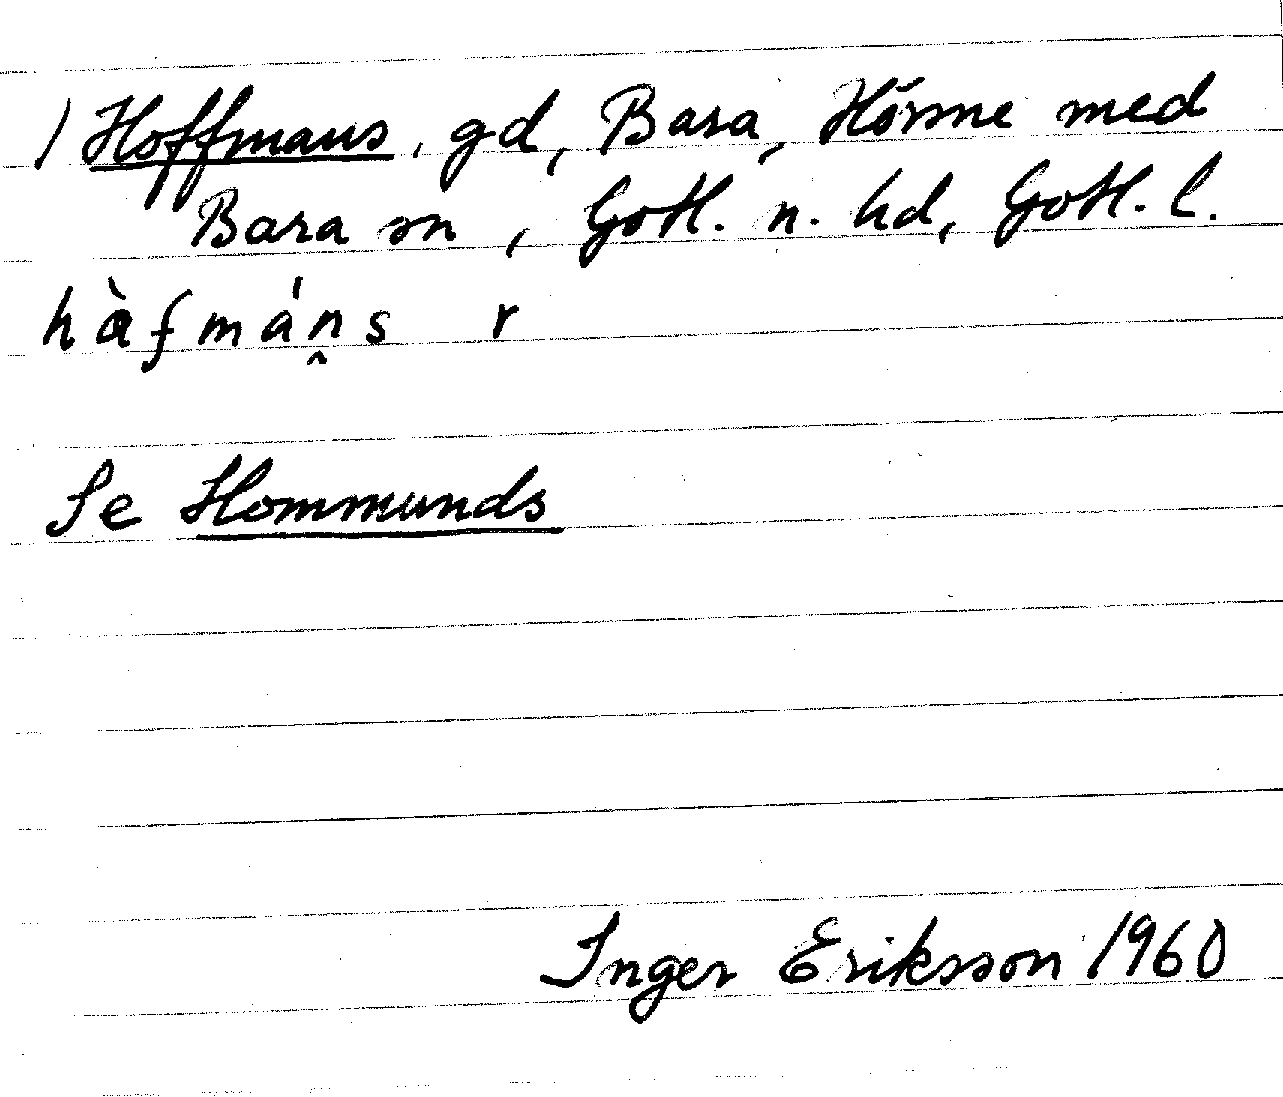 ) Hoffmans, gd, Bara, Hörsne med
Bara sn, Gotl. n. hd, Gotl. l.
hàfmáṋs r
Se Hommunds
Inger Eriksson 1960